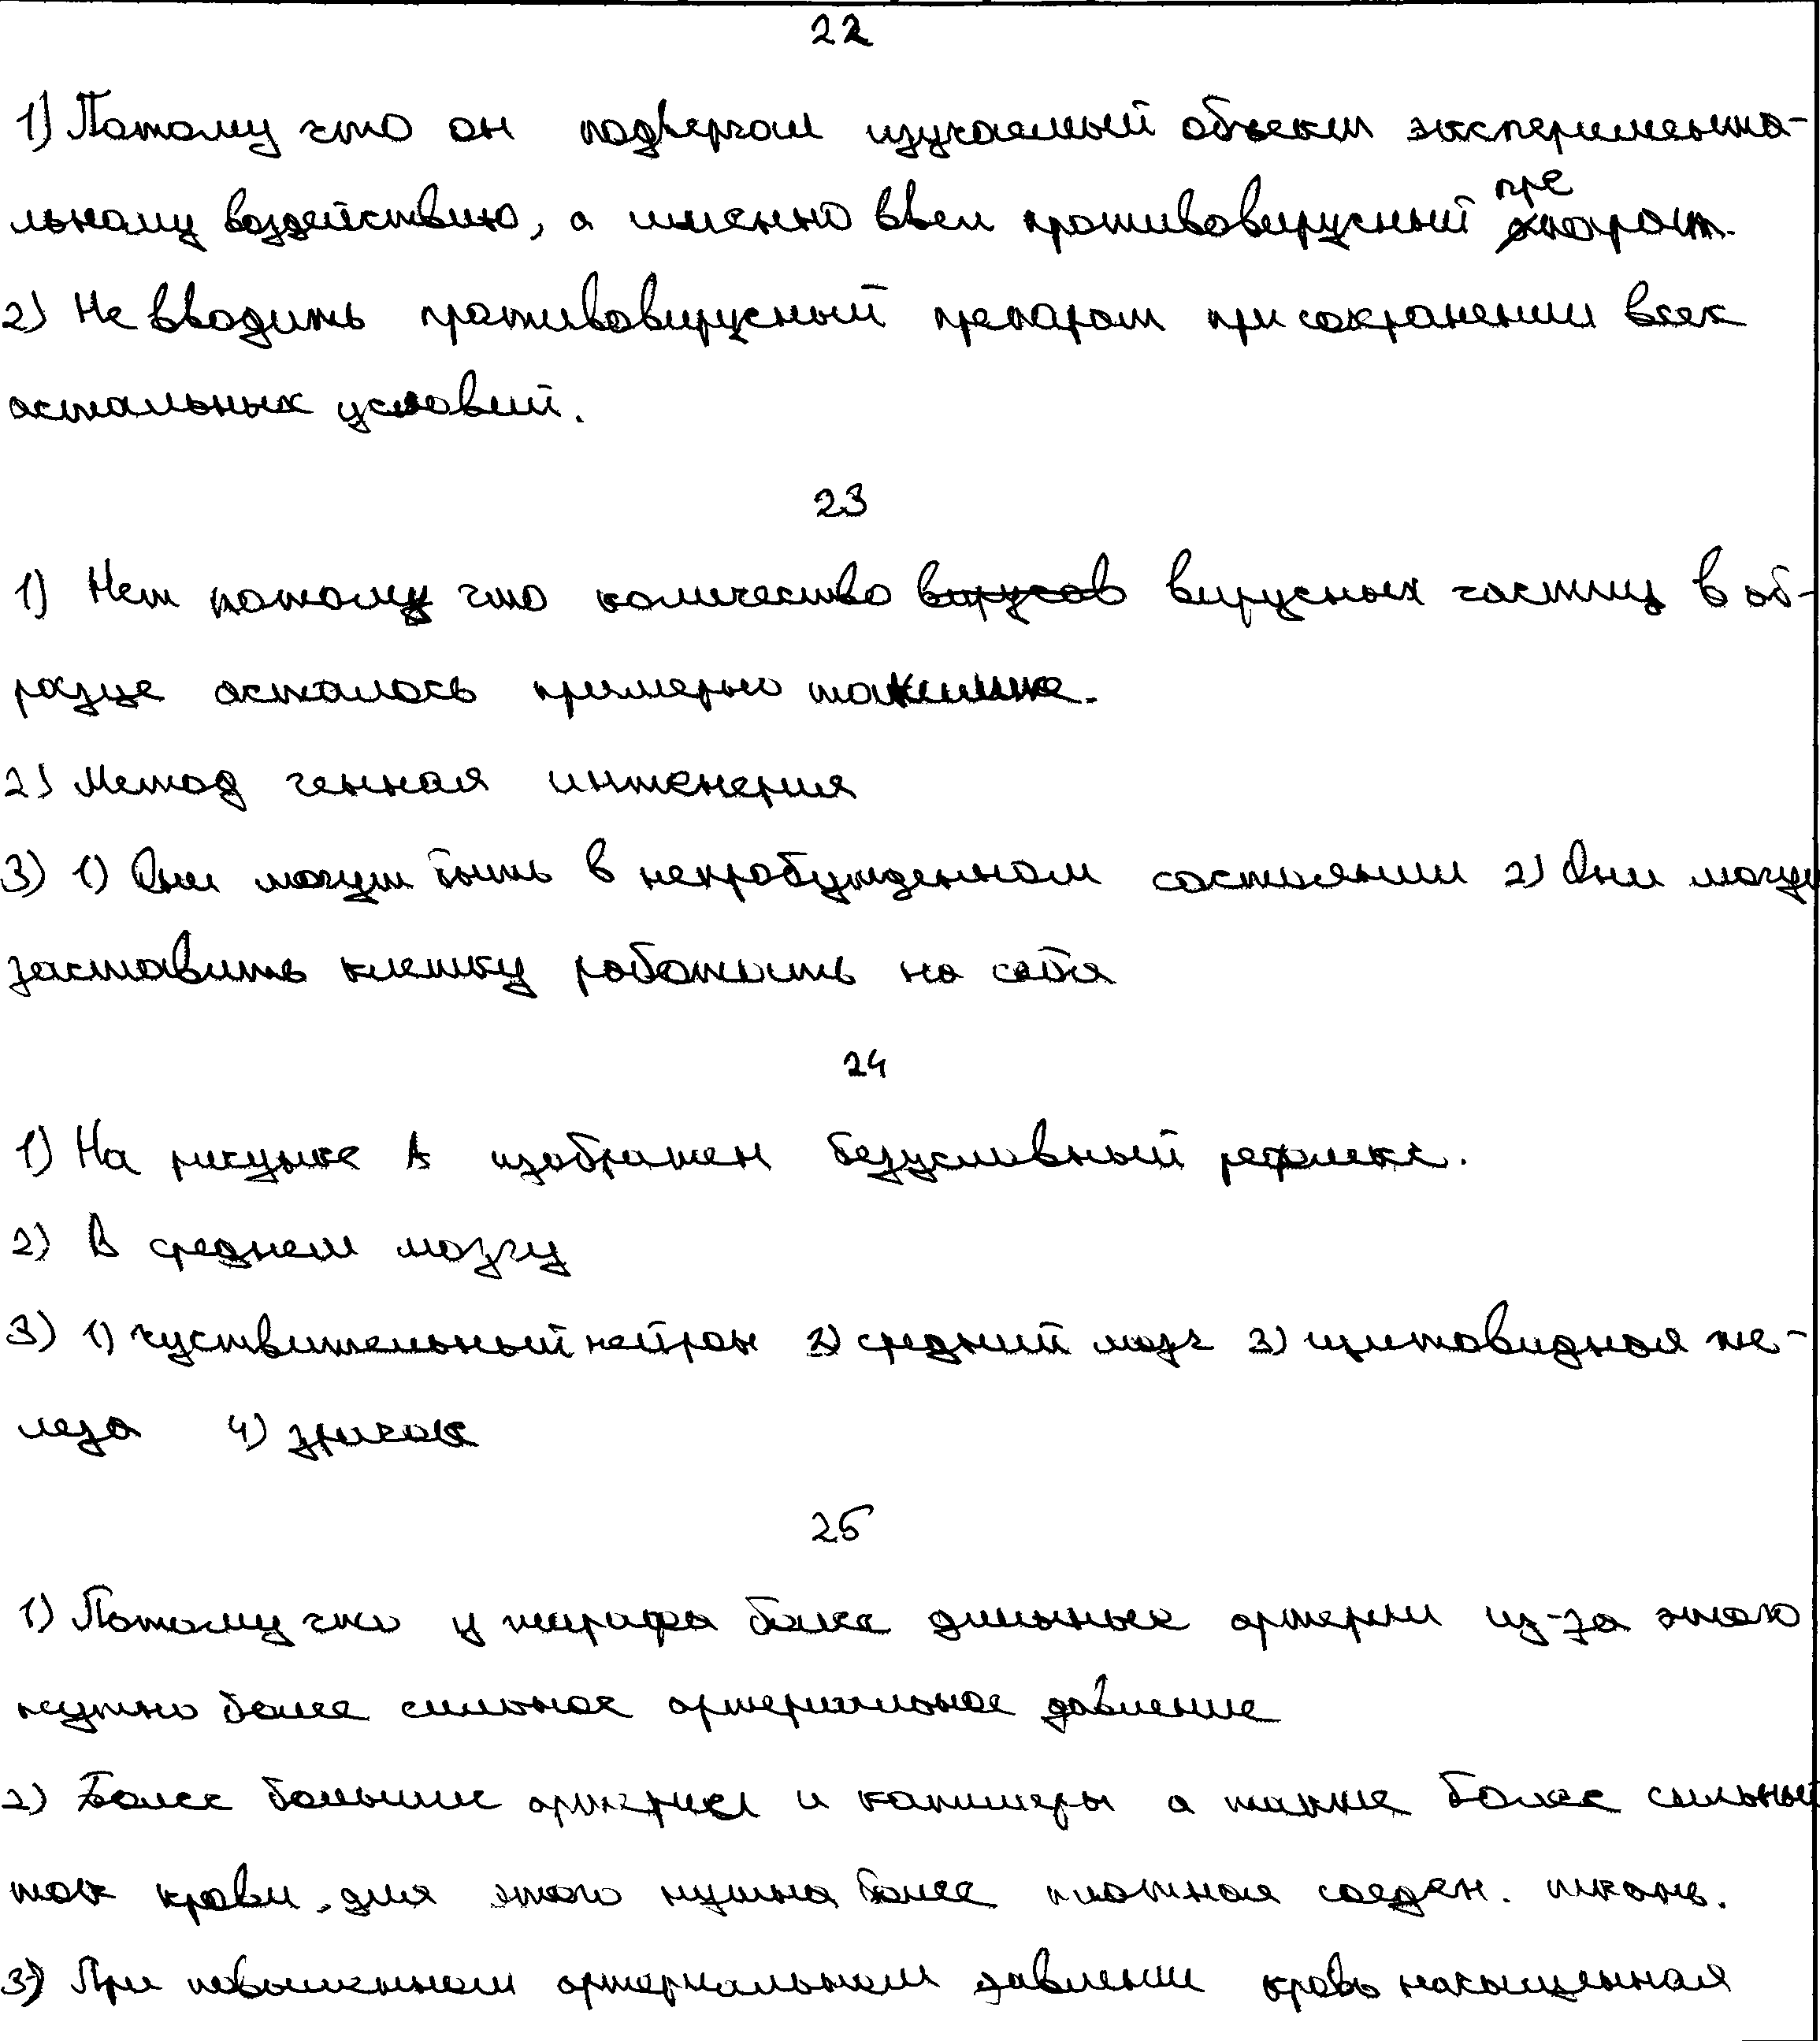 22
1) Потому что он подвергал изучаемый объект эксперимента-
льному воздействию, а именно ввел противовирусный препарат.
2) Не вводить противовирусный препарат при сохранении всех
остальных условий.
23
1) Нет потому что количество вирусов вирусных частиц в об-
разце осталось примерно таким же.
2) Метод генная инженерия
3) 1) Они могут быть в непробужденном состоянии 2) Они могут
заставить клетку работать на себя
24
1) На рисунке А изображен безусловный рефлекс.
2) В среднем мозгу
3) 1) чуствительный нейрон 2) средний мозг 3) щитовидная же-
леза 4)
25
1) Потому что у жирафа более длинные артерии из-за этого
нужно более сильное артериальное давление
2) Более большие артерии и капиляры а также более сильный
ток крови, для этого нужна более плотная соеден. ткань.
3) При повышенном артериальном давлении кровь насыщенная